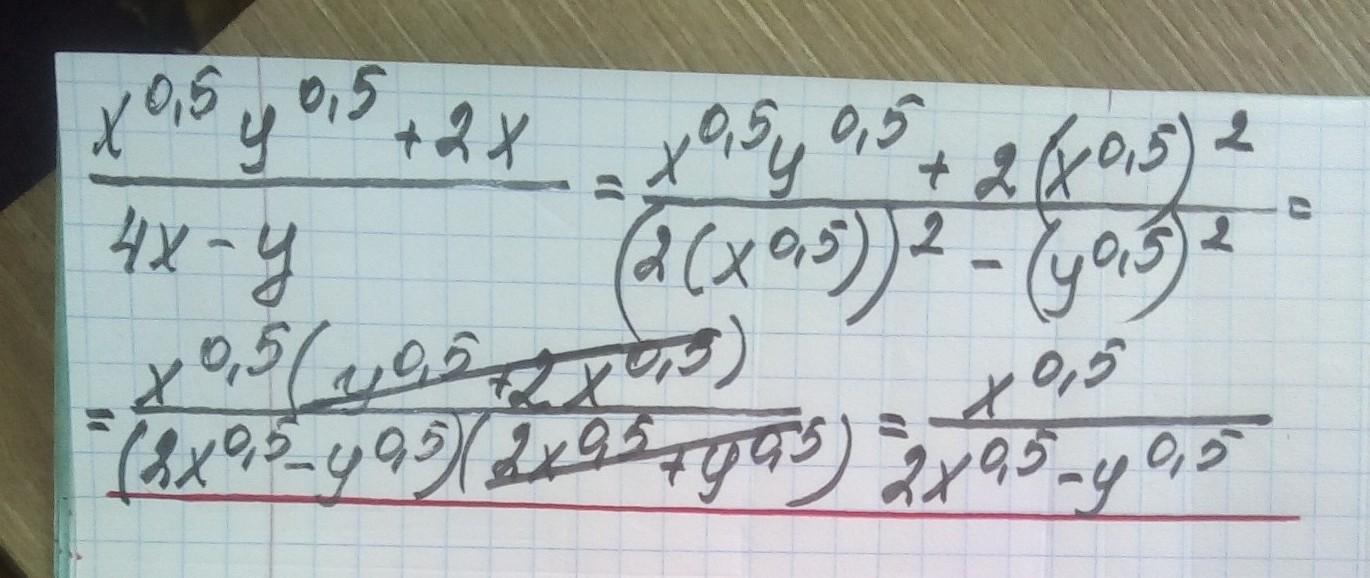 x^0,5 y^0,5 + 2x / 4x - y = x^0,5 y^0,5 + 2(x^0,5)^2 / (2(x^0,5))^2 - (y^0,5)^2 =
= x^0,5(y^0,5 + 2x^0,5) / (2x^0,5 - y^0,5)(2x^0,5 + y^0,5) = x^0,5 / 2x^0,5 - y^0,5